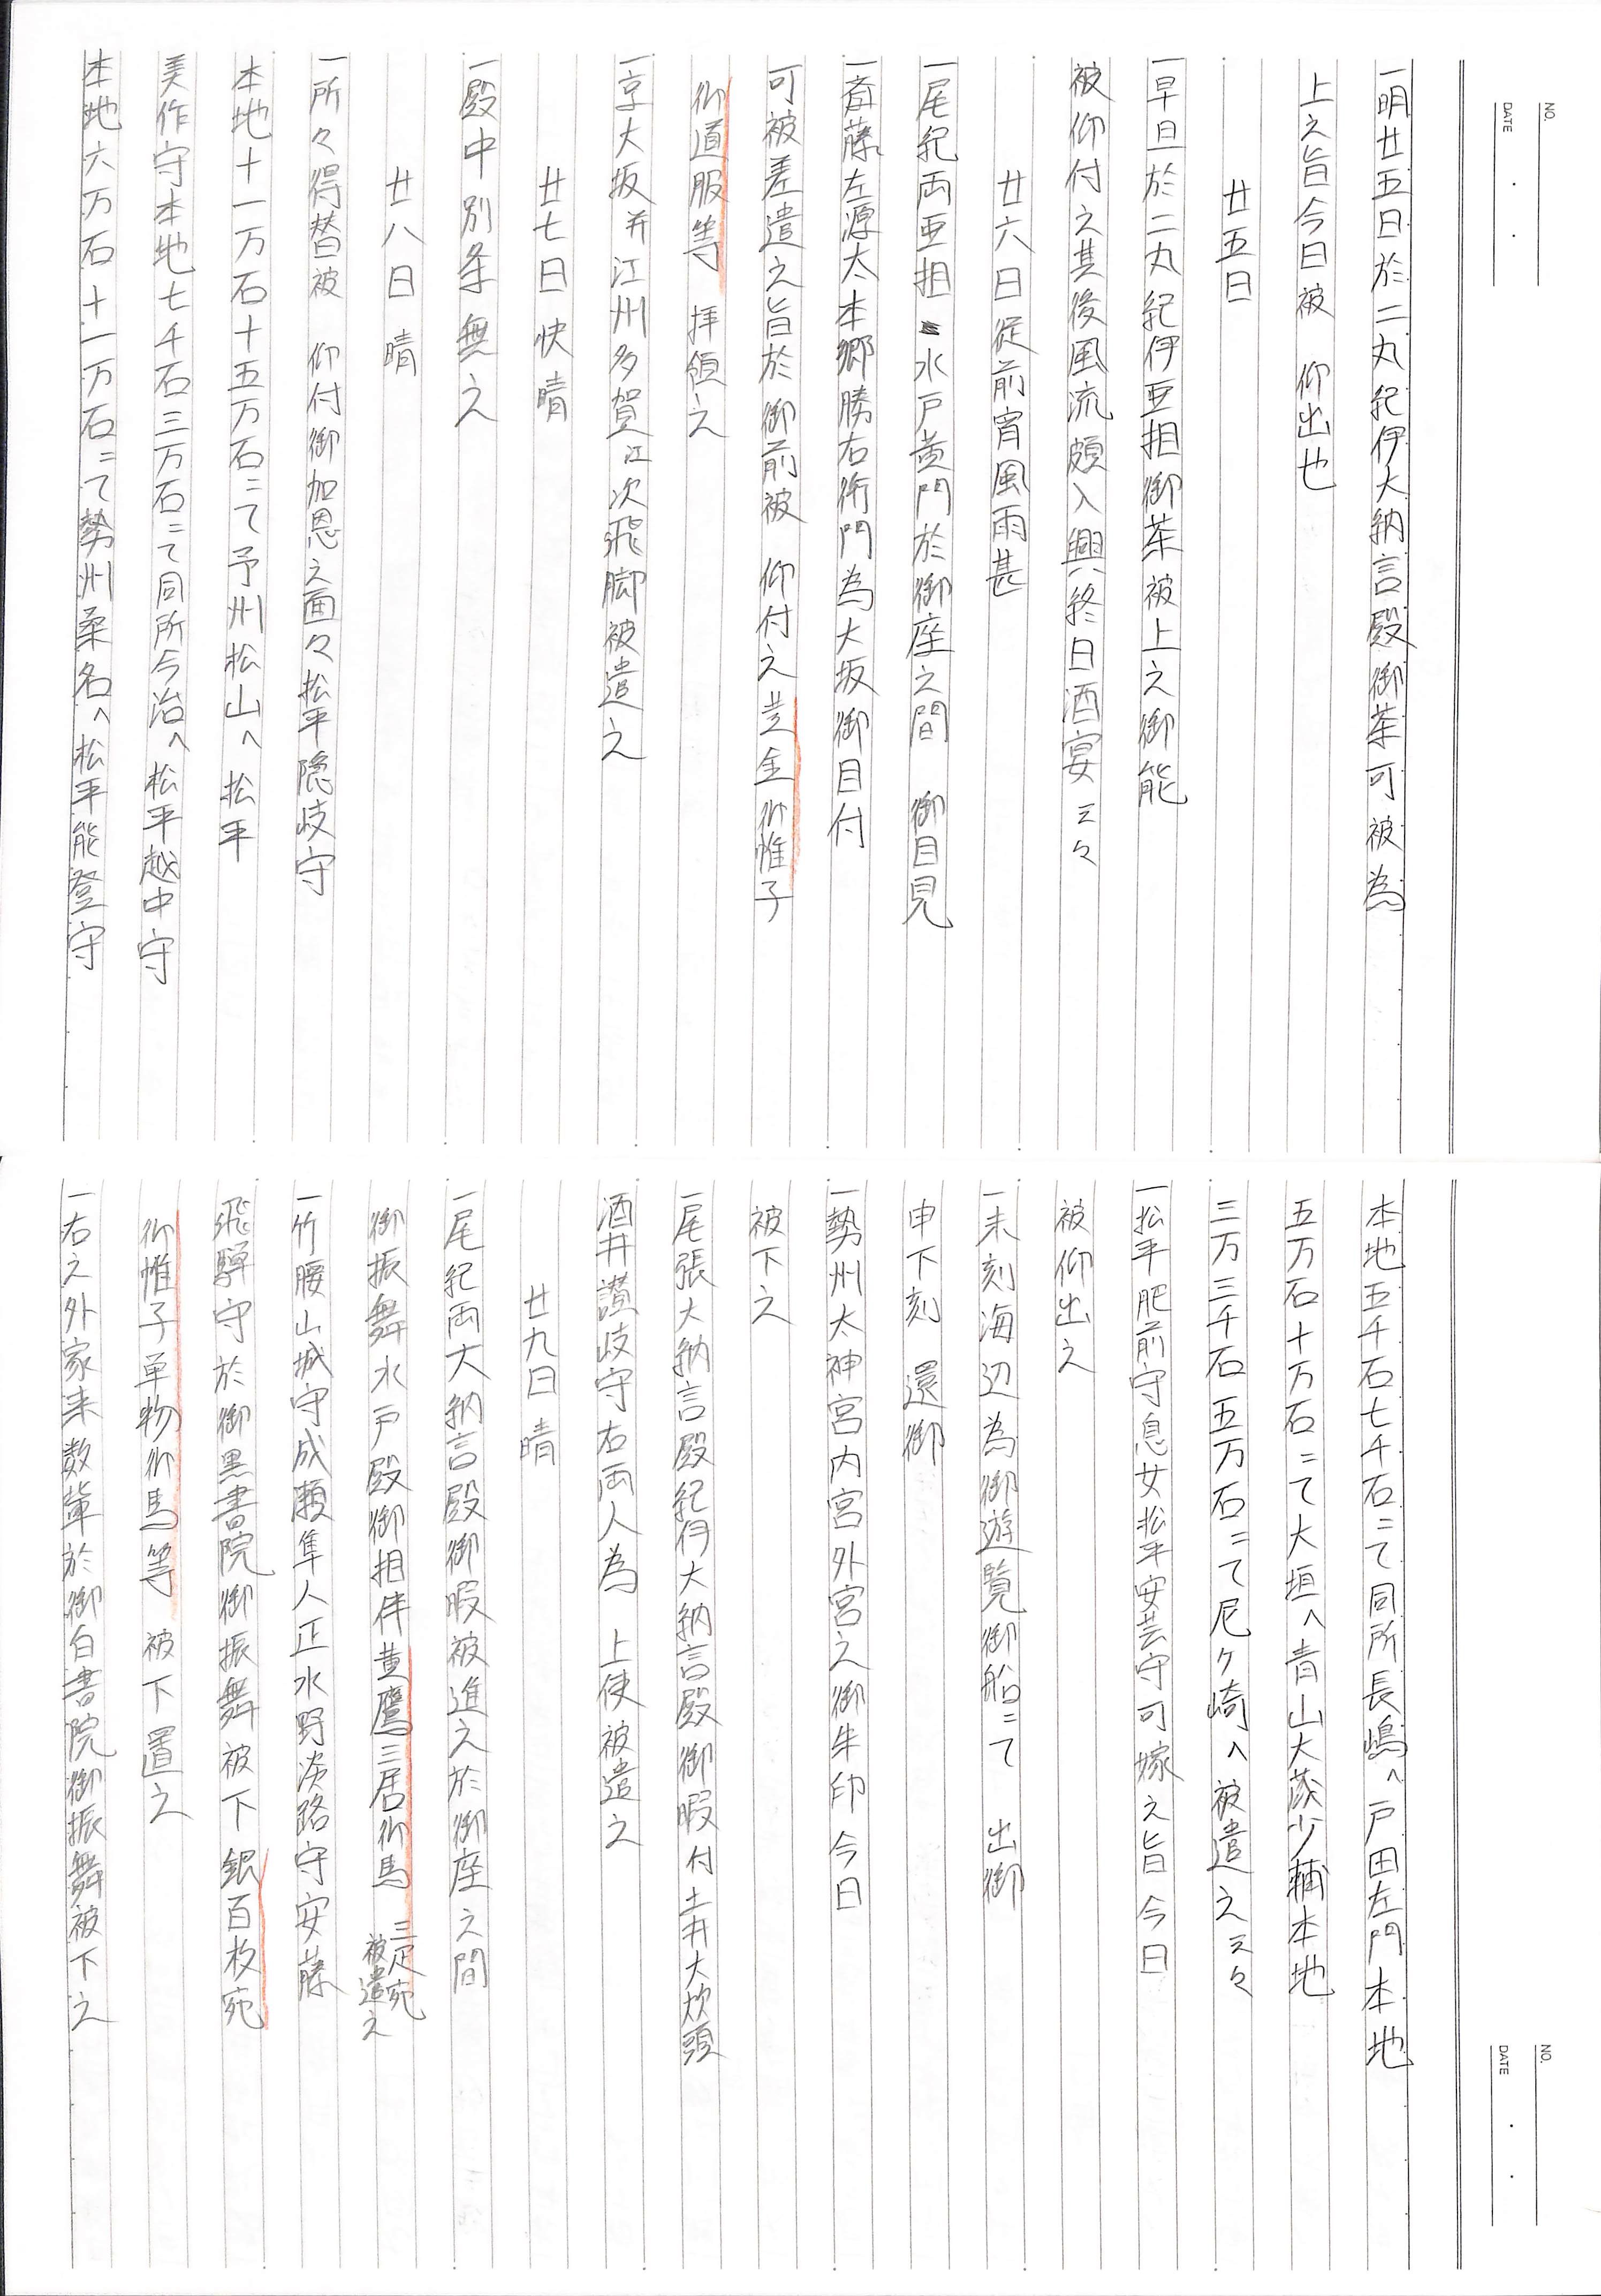 NO.
DATE
一明廿五日於二丸紀伊大納言殿御茶可被為
上之旨今日被 仰出也
廿五日
一早旦於二丸紀伊亜相御茶被上之御能
被仰付之其後風流頗入興終日酒宴云々
廿六日従前宵風雨甚
一尾紀両亜相水戸黄門於御座之間 御目見
一斎藤左源太本郷勝右衛門為大坂御目付
可被差遣之旨於御前被 仰付之黄金御帷子
御道服等 拝領之
一京大坂并江州多賀江次飛脚被遣之
廿七日快晴
一殿中別条無之
廿八日晴
一所々得替被 仰付御加恩之面々松平隠岐守
本地十一万石十五万石ニて予州松山へ松平
美作守本地七千石三万石ニて同所今治へ松平越中守
本地六万石十一万石ニて勢州桑名へ松平能登守
NO.
DATE
本地五千石七千石ニて同所長嶋へ戸田左門本地
五万石十万石ニて大垣へ青山大蔵少輔本地
三万三千石五万石ニて尼ケ崎へ被遣之云々
一松平肥前守息女松平安芸守可嫁之旨今日
被仰出之
一未刻海辺為御遊覧御船ニて 出御
申下刻 還御
一勢州太神宮内宮外宮之御朱印今日
被下之
一尾張大納言殿紀伊大納言殿御暇付土井大炊頭
酒井讃岐守右両人為 上使被遣之
廿九日晴
一尾紀両大納言殿御暇被進之於御座之間
御振舞水戸殿御相伴黄鷹三居御馬 三疋宛被遣之
一竹腰山城守成瀬隼人正水野淡路守安藤
飛騨守於御黒書院御振舞被下銀百枚宛
御帷子単物御馬等 被下置之
一右之外家来数輩於御白書院御振舞被下之